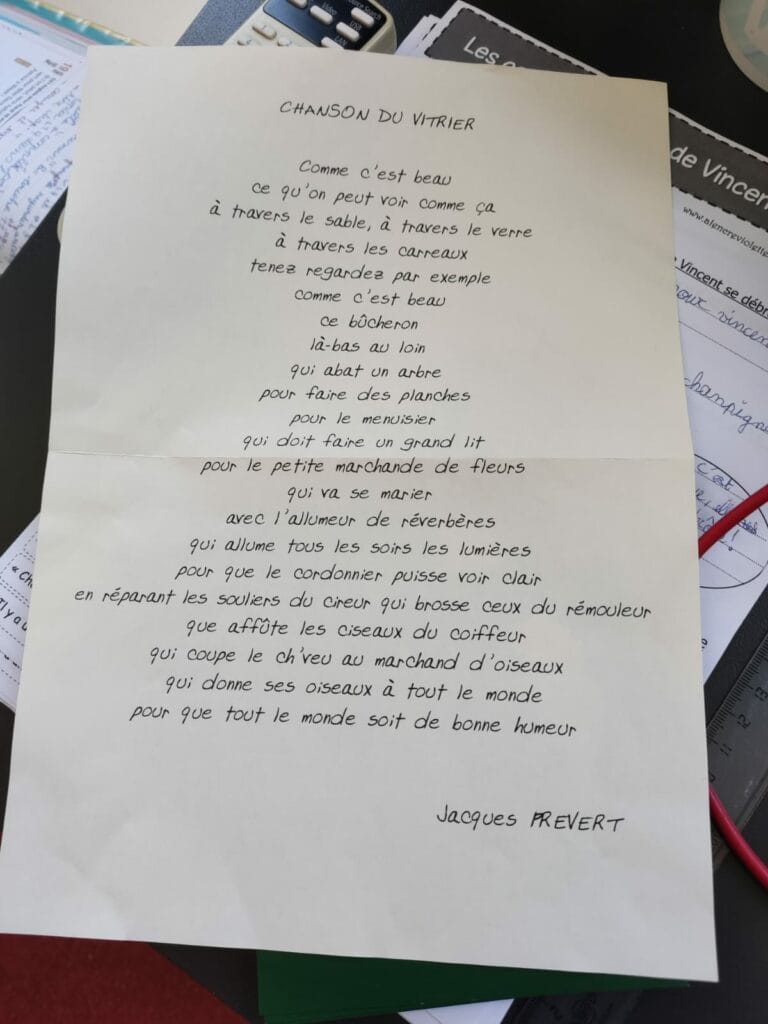 CHANSON DU VITRIER
Comme c'est beau
ce qu'on peut voir comme ça
à travers le sable, à travers le verre
à travers les carreaux
tenez regardez par exemple
comme c'est beau
ce bûcheron
là-bas au loin
qui abat un arbre
pour faire des planches
pour le menuisier
qui doit faire un grand lit
pour le petite marchande de fleurs
qui va se marier
avec l'allumeur de réverbères
qui allume tous les soirs les lumières
pour que le cordonnier puisse voir clair
en réparant les souliers du cireur qui brosse ceux du rémouleur
que affûte les ciseaux du coiffeur
qui coupe le ch'veu au marchand d'oiseaux
qui donne ses oiseaux à tout le monde
pour que tout le monde soit de bonne humeur
Jacques PREVERT
Les
de Vincen
Vincent se débr
pour vincen
champign
c'est
Video
USB
LAN
11 12 13